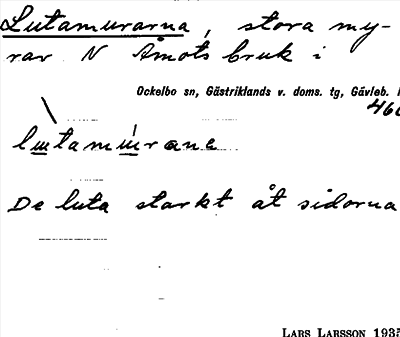 Lutamurarna, stora my-
rar N Åmots bruk i
Ockelbo sn, Gästriklands v. doms. tg, Gävleb.
lutamurane
De luta starkt åt sidorna
LARS LARSSON 1935